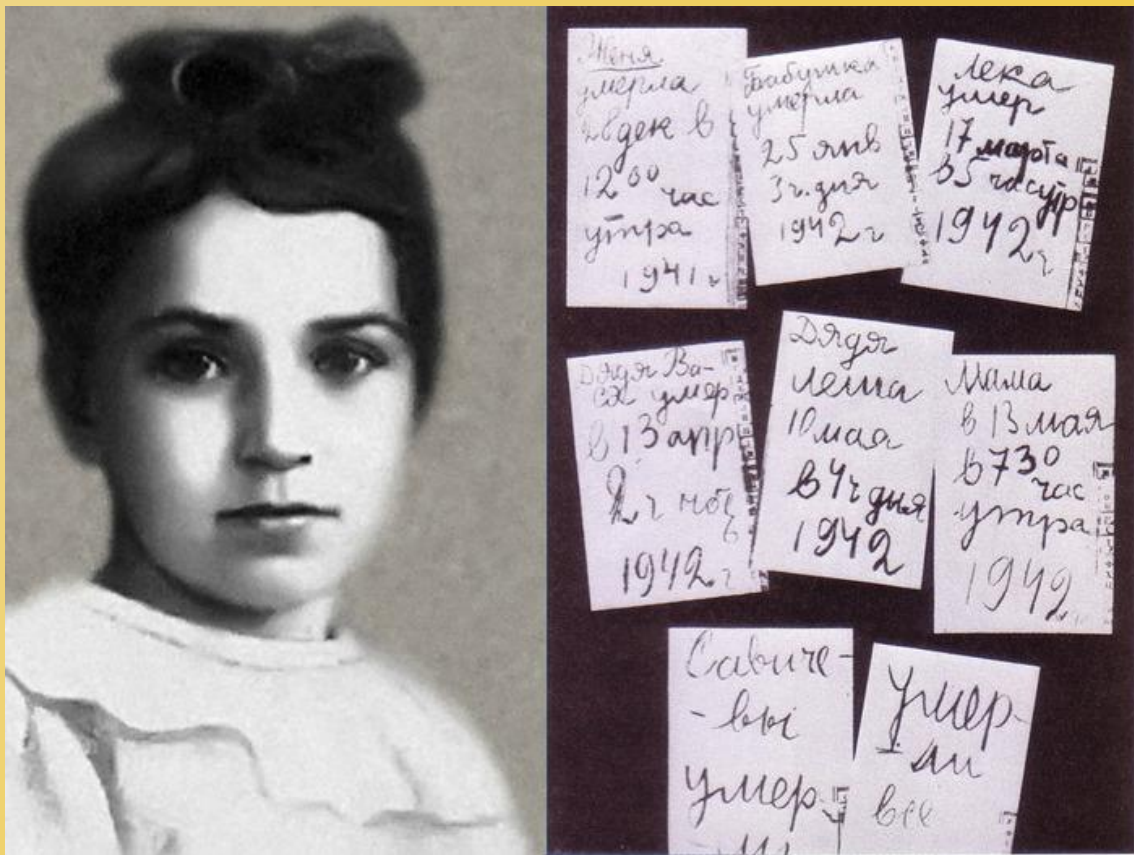 Женя
умерла
28 дек в
12 00 час
утра
1941 г
Бабушка
умерла
25 янв
3 ч. дня
1942 г
Лека
умер
17 марта
в 5 час утр
1942 г
Дядя Ва-
ся умер
в 13 апр
2 ч
1942 г
Дядя
Леша
10 мая
в 4 ч дня
1942
Мама
в 13 мая
в 7 30
час
утра
1942
Савиче-
-вы
умер-
ли
Умер-
ли
все